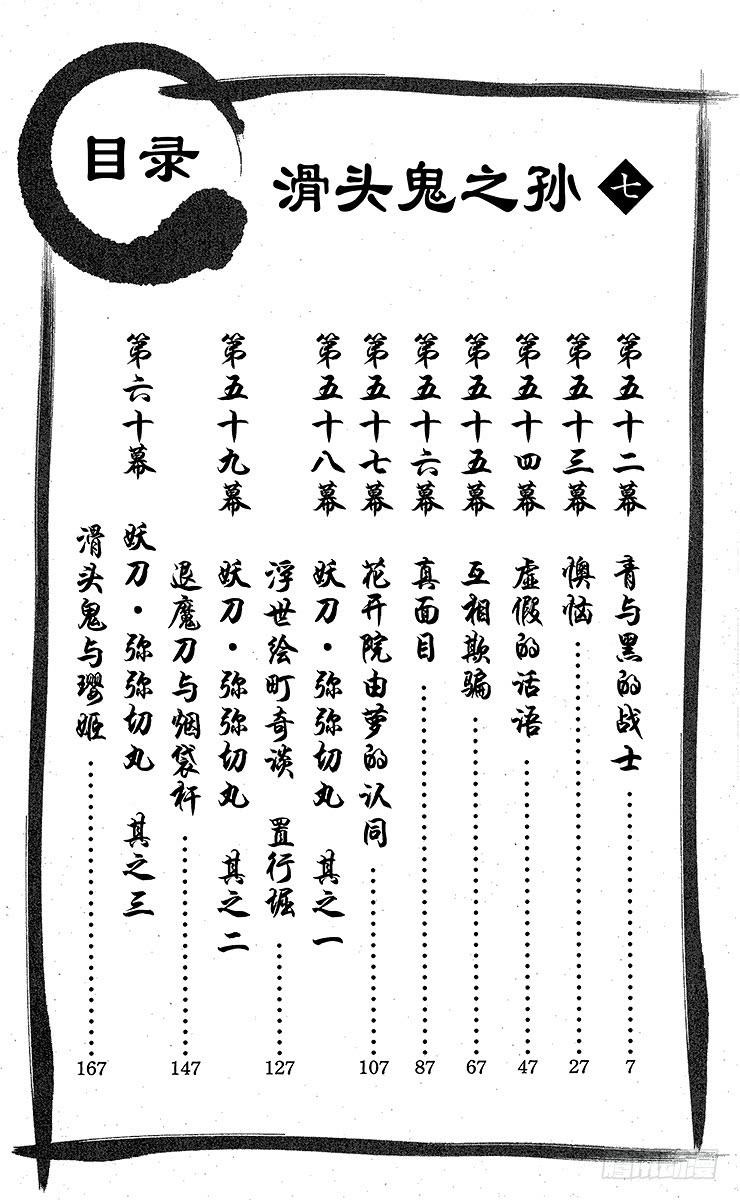 目录
滑头鬼之孙 七
第五十二幕 青与黑的战士……7
第五十三幕 懊恼……27
第五十四幕 虚假的话语……47
第五十五幕 互相欺骗……67
第五十六幕 真面目……87
第五十七幕 花开院由萝的认同……107
第五十八幕 妖刀・弥弥切丸 其之一
浮世绘町奇谈 置行堀……127
第五十九幕 妖刀・弥弥切丸 其之二
退魔刀与烟袋杆……147
第六十幕 妖刀・弥弥切丸 其之三
滑头鬼与璎姬……167